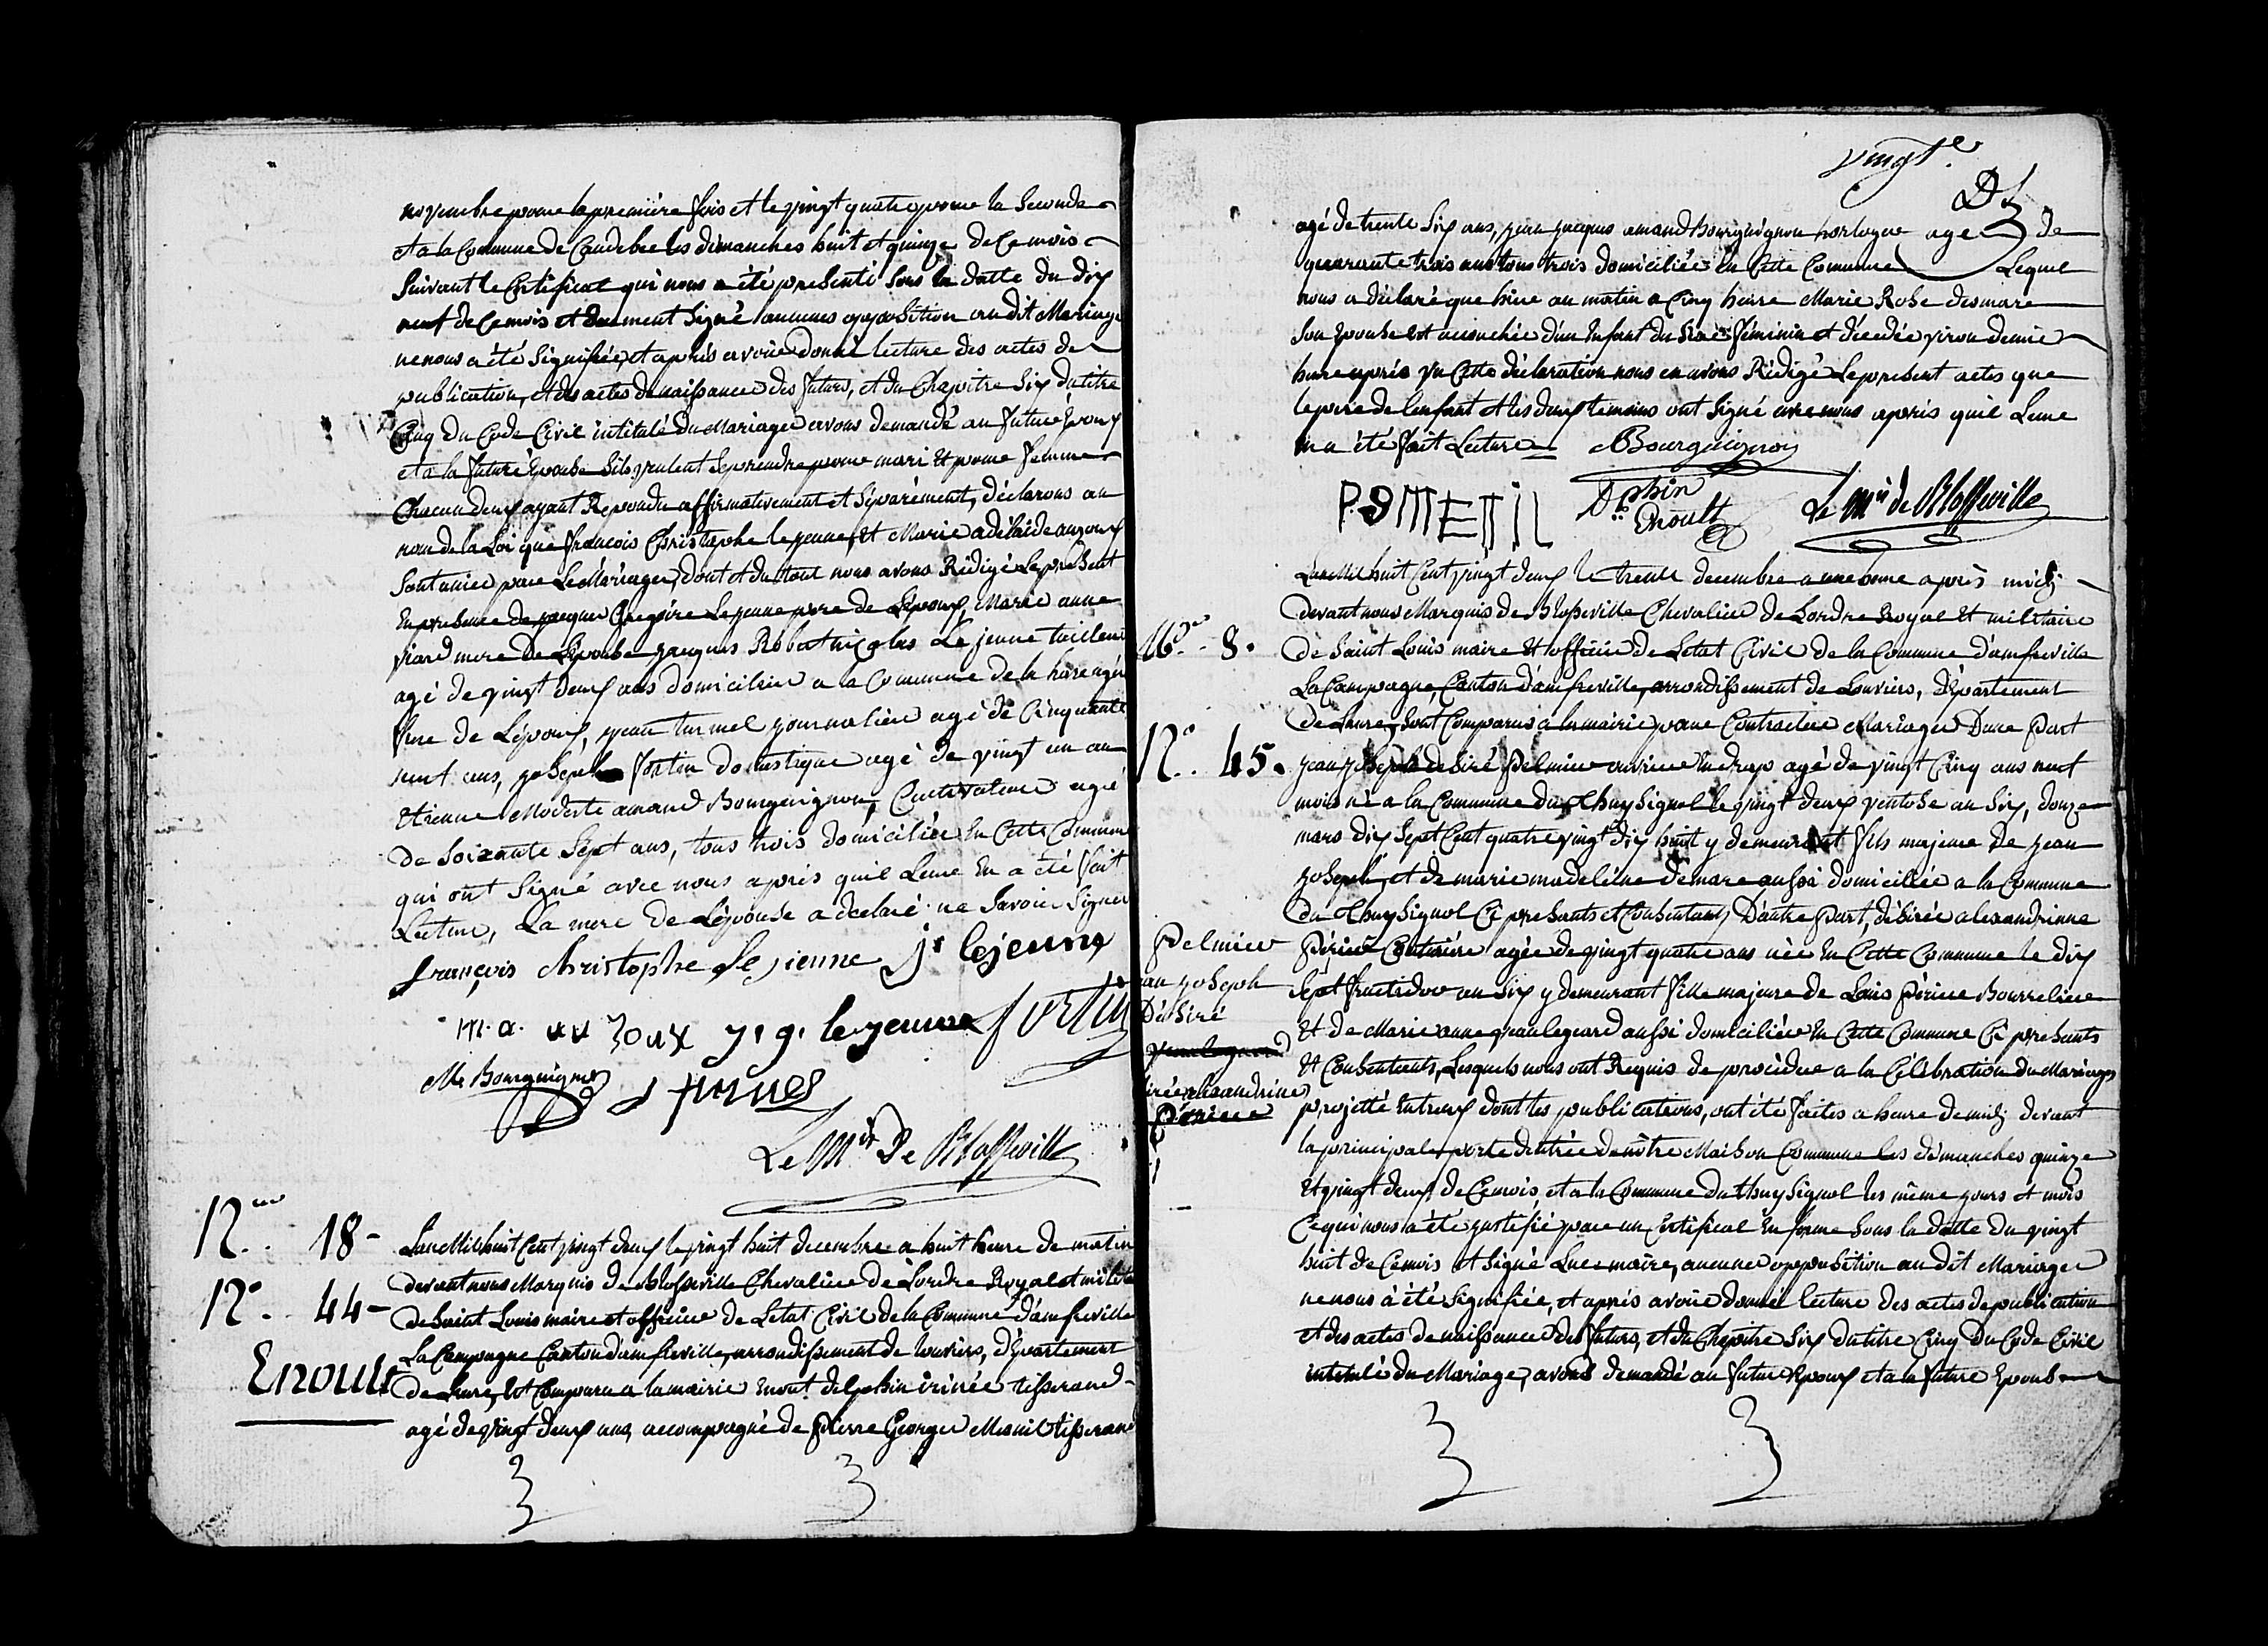 novembre pour la premiére fois et le vingt quatre pour la Seconde
et a la Commune de Caudebec les dimanches huit et quinze de Ce mois
Suivant le Certificat qui nous a été presenté Sous la datte du dix
neuf de Ce mois et duement Signé aucunes opposition au dit Mariage
ne nous a été Signifiée, et aprés avoir donné lecture des actes de
publication, et des actes de naissance des futurs, et du Chapitre Six du titre
Cinq du Code Civil intitulé du Mariage avons demandé au futur Epoux
et a la future Epouse S'ils veulent Se prendre pour mari et pour femme
Chacun deux ayant Repondu affirmativement et Séparément, déclarons au
nom de la Loi que françois Christophe lejeune, et Marie adelaide auzoux
Sont unies par Le Mariage, dont et du tout nous avons Rédigé Le present
En presence de jacques Gregoire Lejeune pere de Lépoux, Marie anne
viard mere de Lépouse jacques Robert nicolas Lejeune tailleur
agé de vingt deux ans domicilier a la Commune de la harengère
frere de Lépoux, jean turmel journalier agé de Cinquante
sept ans, joseph fortin domestique agé de vingt un an
Etienne Modeste amand Bourguignon, Cultivateur agé
de Soixante Sept ans, tous trois domiciliée En Cette Commune
qui ont Signé avec nous aprés quil Leur En a été fait
Lecture, La mere de Lépouse a declaré ne Savoir Signer
françois christophe Le jeune jr lejeune
m. a. au zoux j. g. lejeune fortin
Me Bourguignon J turmel
Le Mis De Blosseville
N.. 18 -
N°. 44 -
Enoult
Lan Mil huit Cent vingt deux le vingt huit decembre a huit heure de matin
devant nous Marquis de Blosseville Chevalier de Lordre Royal et milit
de Saint Louis maire et officier de Létat Civil de la Commune d'amfreville
La Campagne Canton d'amfreville, arrondissement de louviers, département
de Leure, Est Comparu a la mairie Enout delphin irinée tisserand
agé de vingt deux ans, accompagné de Pierre George Mesnil tisserand
vingt
agé de trente Six ans, jean jacques amand Bourguignon horloger agé de
quarante trois ans tous trois domiciliée en Cette Commune Lequel
nous a déclaré que hier au matin a Cinq heure Marie Rose desmare
Son Epouse Est accouchée d'un Enfant du Sexe féminin et décedée viron demie
heure aprés vu Cette déclaration nous en avons Rédigé Le present actes que
le pere de lenfant et les deux temoins ont Signé avec nous aprés quil Leur
En a été fait Lecture Bourguignon
Dphin
Enoult
Le Mis de Blosseville
Lan Mil huit Cent vingt deux le trente decembre a une heure aprés midi
devant nous Marquis de Blosseville Chevalier de Lordre Royal et militaire
de Saint Louis maire et officier de Létat Civil de la Commune d'amfreville
La Campagne, Canton d'amfreville, arrondissement de Louviers, département
de Leure, Sont Comparus a la mairie pour Contracter Mariage D'une Part
Mge. 8.
N°.. 45.
Pelmier
jean joseph
Désiré
Désirée alexandrine
Périer
jean joseph desiré Pelmier ouvrier En drap agé de vingt Cinq ans neuf
mois né a la Commune du thuy Signol le vingt deux ventose an Six, douze
mars dix Sept Cent quatre vingt dix huit y demeurant fils majeur de jean
joseph, et de marie madeleine démare aussi domiciliée a la Commune
du thuy Signol Ci presents et Consentants, D'autre Part, désirée alexandrinne
Périer Couturiére agée de vingt quatre ans née En Cette Commune le dix
Sept fructidor an Six y demeurant fille majeure de Louis Périer Bourrelier
Et de Marie anne jean leguard aussi domiciliée En Cette Commune Ci presents
et Consentents, Lesquels nous ont Requis de procéder a la Célébration du Mariage
projetté Entreux dont les publications, ont été faites a heure de midi devant
la principale porte d'entrée de nôtre Maison Commune les dimanches quinze
Et vingt deux de Ce mois, et a la Commune du thuy Signol les même jours et mois
Ce qui nous a été justifié par un Certificat En forme Sous la datte du vingt
huit de Ce mois et Signé Luce maire, aucune opposition au dit Mariage
ne nous à été Signifiée, et aprés avoir donné lecture des actes de publication
et des actes de naissance des futurs, et du Chapitre Six du titre Cinq du Code Civil
intitulé du Mariage, avons demandé au futur Epoux et a la future Epouse